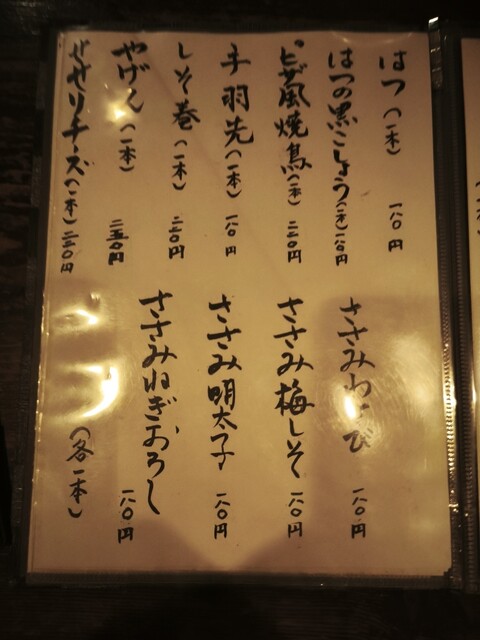 はつ(一本) 一八〇円
はつの黒こしょう(一本)一八〇円
ピザ風焼鳥(一本) 二二〇円
手羽先(一本) 一八〇円
しそ巻(一本) 二二〇円
やげん(一本) 二五〇円
せせりチーズ(一本)二二〇円
ささみわさび 一八〇円
ささみ梅しそ 一八〇円
ささみ明太子 一八〇円
ささみねぎおろし 一八〇円
(各一本)